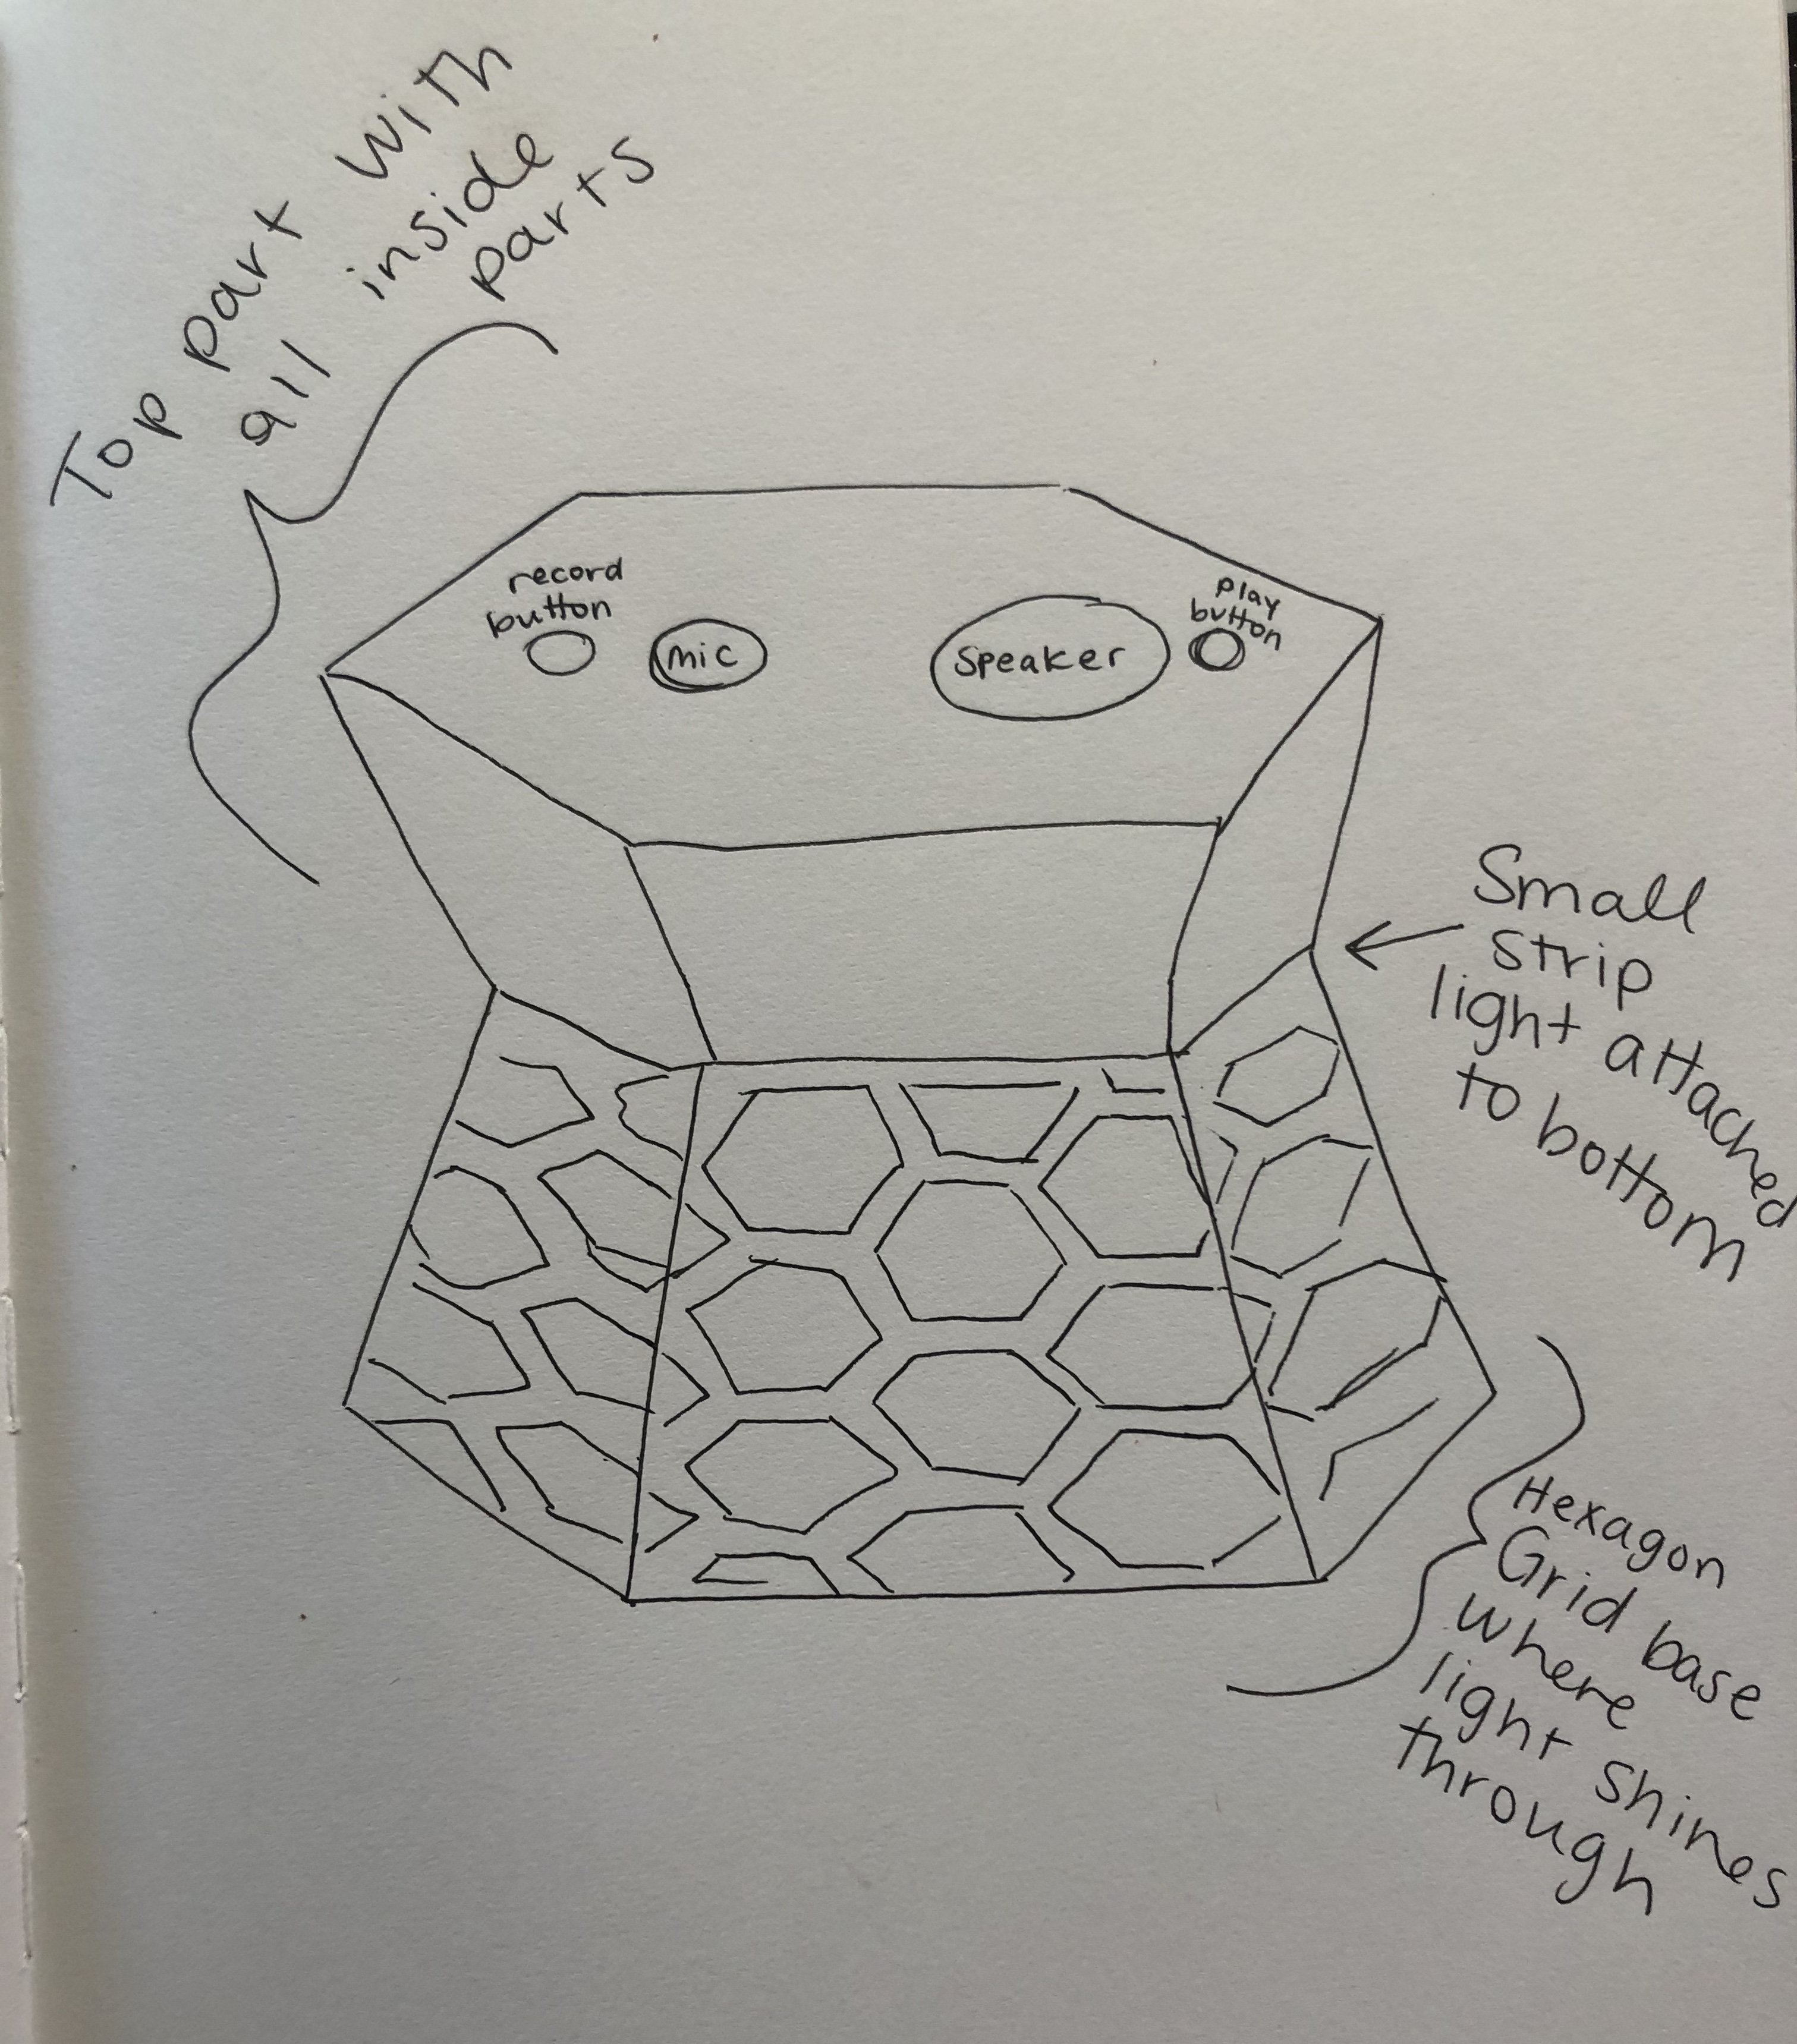 Top part with
all inside
parts
record
button
mic
Speaker
play
button
Small
strip
light attached
to bottom
Hexagon
Grid base
where
light shines
through